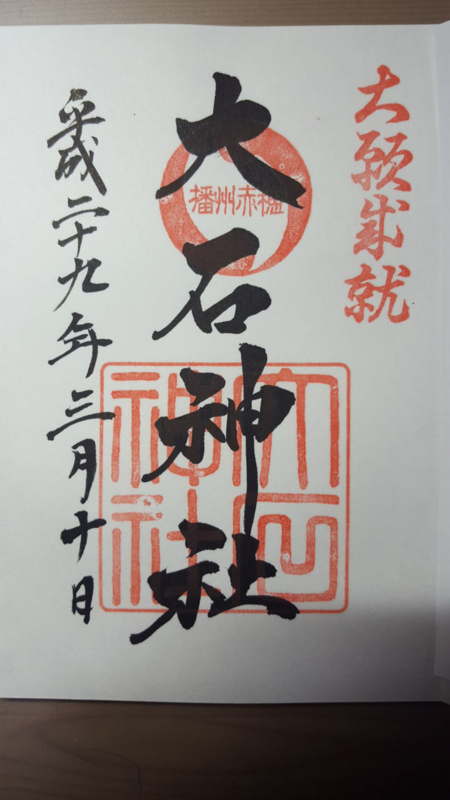 大願成就
播州赤穂
大石神社
大石神社
平成二十九年三月十日